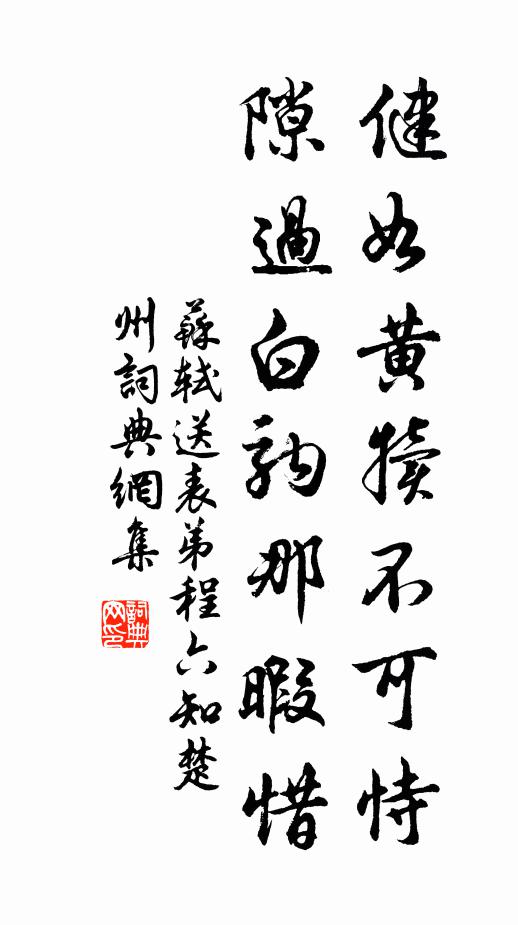 健如黃犢不可恃
隙過白駒那暇惜
蘇軾送表弟程六知楚
州詞典網集
詞典
网印